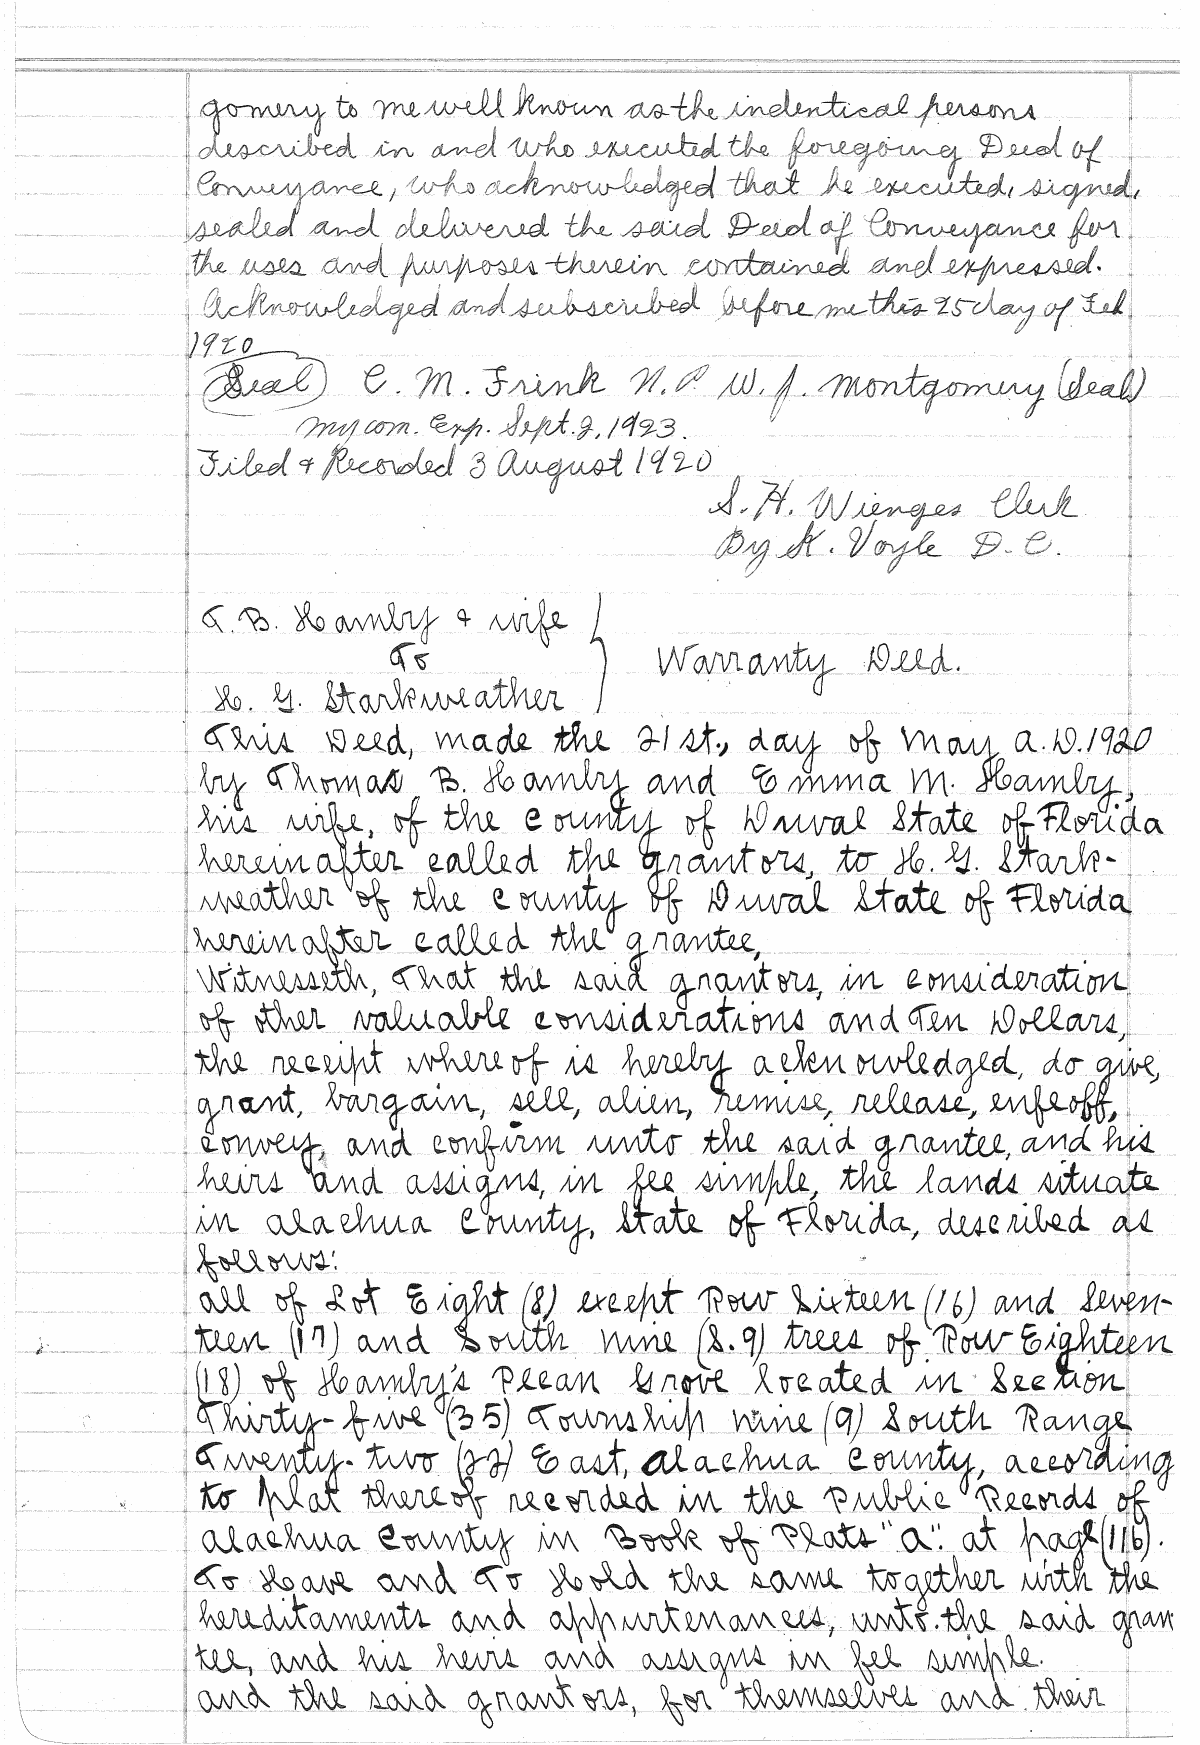 gomery to me well known as the indentical persons
described in and who executed the foregoing Deed of
Conveyance, who acknowledged that he executed, signed,
sealed and delivered the said Deed of Conveyance for
the uses and purposes therein contained and expressed.
Acknowledged and subscribed before me this 25 day of Feb
1920
(Seal) C. M. Frink N. P. W. J. Montgomery (Seal)
my com. Exp. Sept. 2, 1923.
Filed & Recorded 3 August 1920
S. H. Wienges Clerk
By K. Voyle D. C.
T. B. Hamby & wife
To
Warranty Deed.
H. G. Starkweather
This Deed, made the 21st., day of May A.D. 1920
by Thomas B. Hamby and Emma M. Hamby,
his wife, of the County of Duval State of Florida
hereinafter called the grantors, to H. G. Stark-
weather of the County of Duval State of Florida
hereinafter called the grantee,
Witnesseth, That the said grantors, in consideration
of other valuable considerations and Ten Dollars,
the receipt whereof is hereby acknowledged, do give,
grant, bargain, sell, alien, remise, release, enfeoff,
convey, and confirm unto the said grantee, and his
heirs and assigns, in fee simple, the lands situate
in Alachua County, State of Florida, described as
follows:
All of Lot Eight (8) except Row Sixteen (16) and Seven-
teen (17) and South nine (S.9) trees of Row Eighteen
(18) of Hamby's Pecan Grove located in Section
Thirty-five (35) Township nine (9) South Range
Twenty-two (22) East, Alachua County, according
to plat thereof recorded in the Public Records of
Alachua County in Book of Plats "A". at page (116).
To Have and To Hold the same together with the
hereditaments and appurtenances, unto the said gran
tee, and his heirs and assigns in fee simple.
And the said grantors, for themselves and their